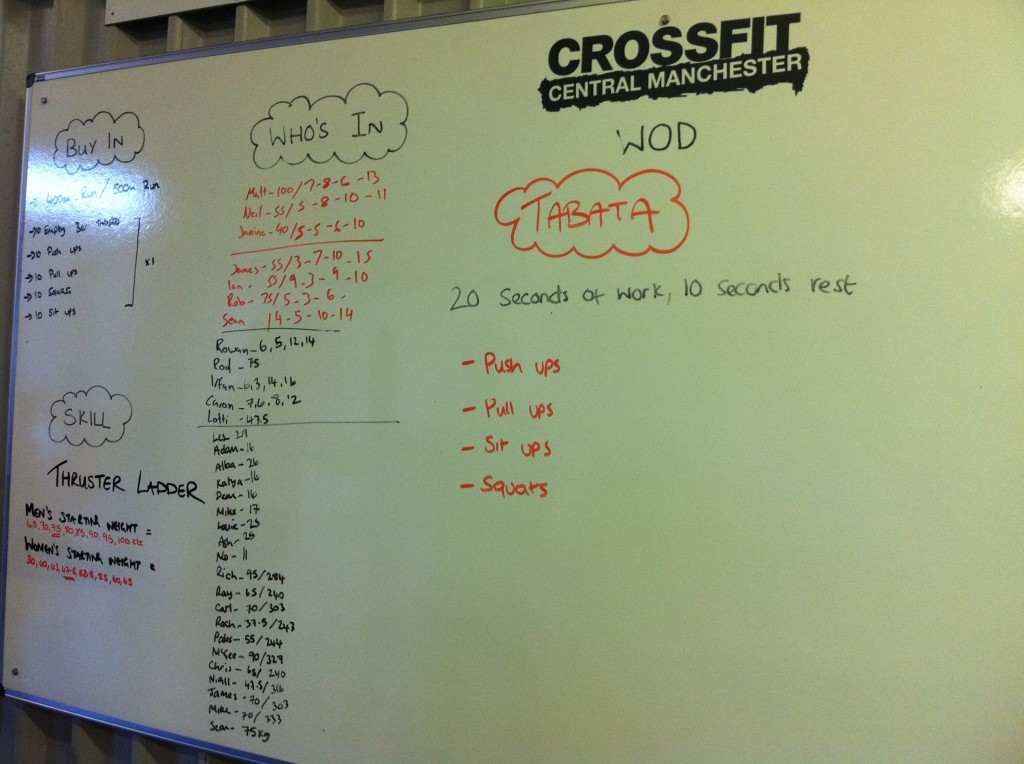 CROSSFIT
CENTRAL MANCHESTER
BUY IN
→ 400m Run / 500m Run
→ 10 Empty Bar Thrusters
→ 10 Push ups
→ 10 Pull ups
→ 10 Squats
→ 10 Sit ups
x1
SKILL
THRUSTER LADDER
MEN'S STARTING WEIGHT =
65, 70, 75, 80, 85, 90, 95, 100 etc
WOMEN'S STARTING WEIGHT =
WHO'S IN
Matt - 100 / 7 - 8 - 6 - 13
Neil - 55 / 5 - 8 - 10 - 11
Janine - 40 / 5 - 5 - 6 - 10
James - 55 / 3 - 7 - 10 - 15
Ian - 55 / 9 - 3 - 9 - 10
Rob - 75 / 5 - 3 - 6 -
Sean / 4 - 5 - 10 - 14
Rowan - 6, 5, 12, 14
Pod - 75
Irfan - 6, 3, 14, 16
Caron - 7, 6, 8, 12
Lotti - 47.5
Adam - 16
Alba - 26
Katya - 16
Dean - 16
Mike - 17
Louie - 25
Ash - 25
Mo - 11
Rich - 95 / 284
Ray - 65 / 240
Carl - 70 / 303
Rach - 37.5 / 243
Pabs - 55 / 244
McGee - 90 / 329
Chris - 65 / 240
Niall - 47.5 / 316
James - 70 / 303
Mike - 70 / 333
Sean - 75kg
WOD
TABATA
20 Seconds of work, 10 seconds rest
- Push ups
- Pull ups
- Sit ups
- Squats